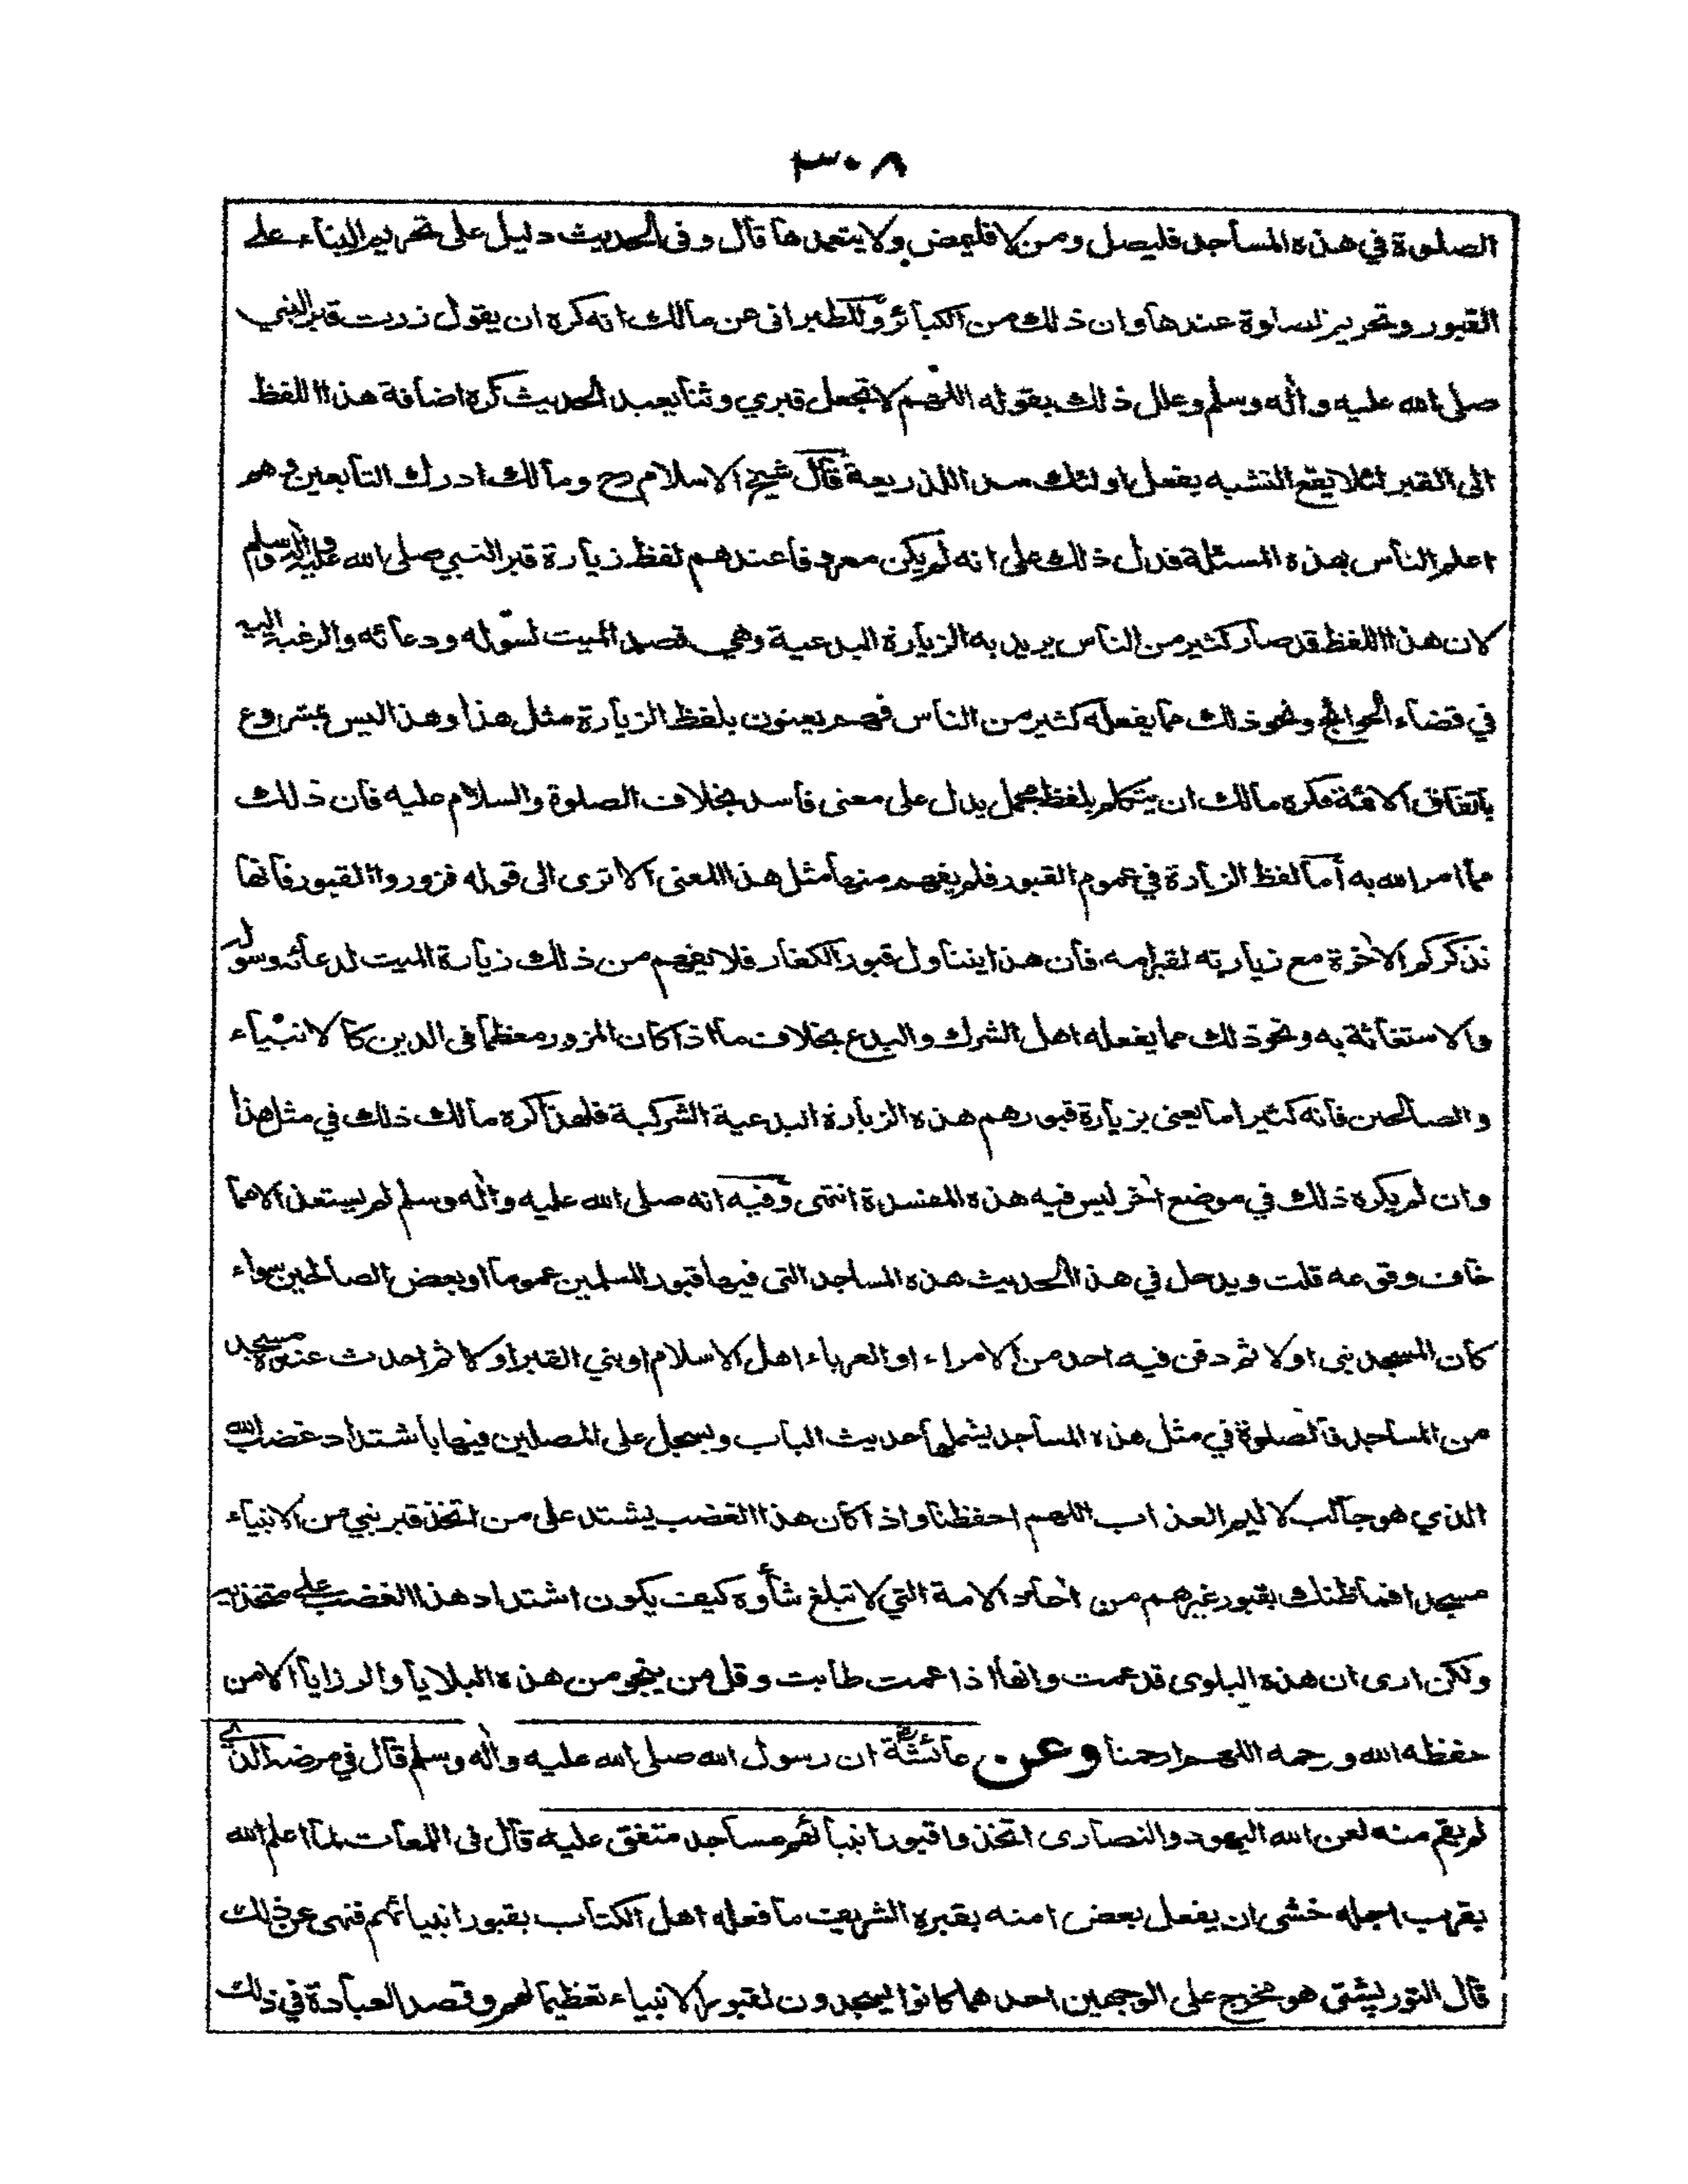 ٣٠٨
الصلوة في هذه المساجد فليصل ومن لا فليمض ولا يتعمدها قال وفى الحديث دليل على تحريم البناء على
القبور وتحريم الصلوة عندها وان ذلك من الكبائر وللطبرانى عن مالك انه كره ان يقول زرت قبر النبي
صلى الله عليه واٰله وسلم وعلل ذلك بقوله اللهم لا تجعل قبري وثنا يعبد الحديث كره اضافة هذا اللفظ
الى القبر لئلا يقع التشبه بفعل اولئك سدا للذريعة قال شيخ الاسلام رح ومالك ادرك التابعين وهم
اعلم الناس بهذه المسئلة فدل ذلك على انه لم يكن معروفا عندهم لفظ زيارة قبر النبي صلى الله عليه واٰله وسلم
لان هذا اللفظ قد صار كثير من الناس يريد به الزيارة البدعية وهي قصد الميت لسؤله ودعائه والرغبة اليه
في قضاء الحوائج ونحو ذلك مما يفعله كثير من الناس فهم يعينون بلفظ الزيارة مثل هذا وهذا ليس بمشروع
باتفاق الائمة فكره مالك ان يتكلم بلفظ مجمل يدل على معنى فاسد بخلاف الصلوة والسلام عليه فان ذلك
مما امر الله به أما لفظ الزيارة في عموم القبور فلم يفهم منها مثل هذا المعنى الا ترى الى قوله فزوروا القبور فانها
تذكركم الاٰخرة مع زيارته لقبر امه فان هذا يتناول قبور الكفار فلا يفهم من ذلك زيارة الميت لدعائه وسوله
والاستغاثة به ونحو ذلك مما يفعله اهل الشرك والبدع بخلاف ما اذا كان المزور معظما فى الدين كالانبياء
والصالحين فانه كثيرا ما يعنى بزيارة قبورهم هذه الزيارة البدعية الشركية فلهذا كره مالك ذلك في مثل هذا
وان لم يكره ذلك في موضع اٰخر ليس فيه هذه المفسدة انتهى وفيه انه صلى الله عليه واٰله وسلم لم يستعذ الا مما
خاف وقوعه قلت ويدخل في هذا الحديث هذه المساجد التى فيها قبور المسلمين عموما او بعض الصالحين سواء
كان المسجد بنى اولا ثم دفن فيه احد من الامراء او الغرباء اهل الاسلام او بني القبر اولا ثم احدث عنده مسجد
من المساجد فالصلوة في مثل هذه المساجد يشملها حديث الباب ويسجل على المصلين فيها باشتداد غضب الله
الذي هو جالب لاليم العذاب اللهم احفظنا واذا كان هذا الغضب يشتد على من اتخذ قبر نبي من الانبياء
مسجدا فما ظنك بقبور غيرهم من اٰحاد الامة التي لا تبلغ شأوه كيف يكون اشتداد هذا الغضب على متخذيه
ولكن ارى ان هذه البلوى قد عمت وانها اذا عمت طابت وقل من ينجو من هذه البلايا والرزايا الا من
حفظه الله ورحمه اللهم ارحمنا وعن عائشة رض ان رسول الله صلى الله عليه واٰله وسلم قال في مرضه الذي
لم يقم منه لعن الله اليهود والنصارى اتخذوا قبور انبيائهم مساجد متفق عليه قال فى اللمعات لما اعلم الله
بقرب اجله خشى ان يفعل بعض امته بقبره الشريف ما فعله اهل الكتاب بقبور انبيائهم فنهى عن ذلك
قال التورپشتى هو مخرج على الوجهين احدهما كانوا يسجدون لقبور الانبياء تعظيما لهم وقصد العبادة في ذلك